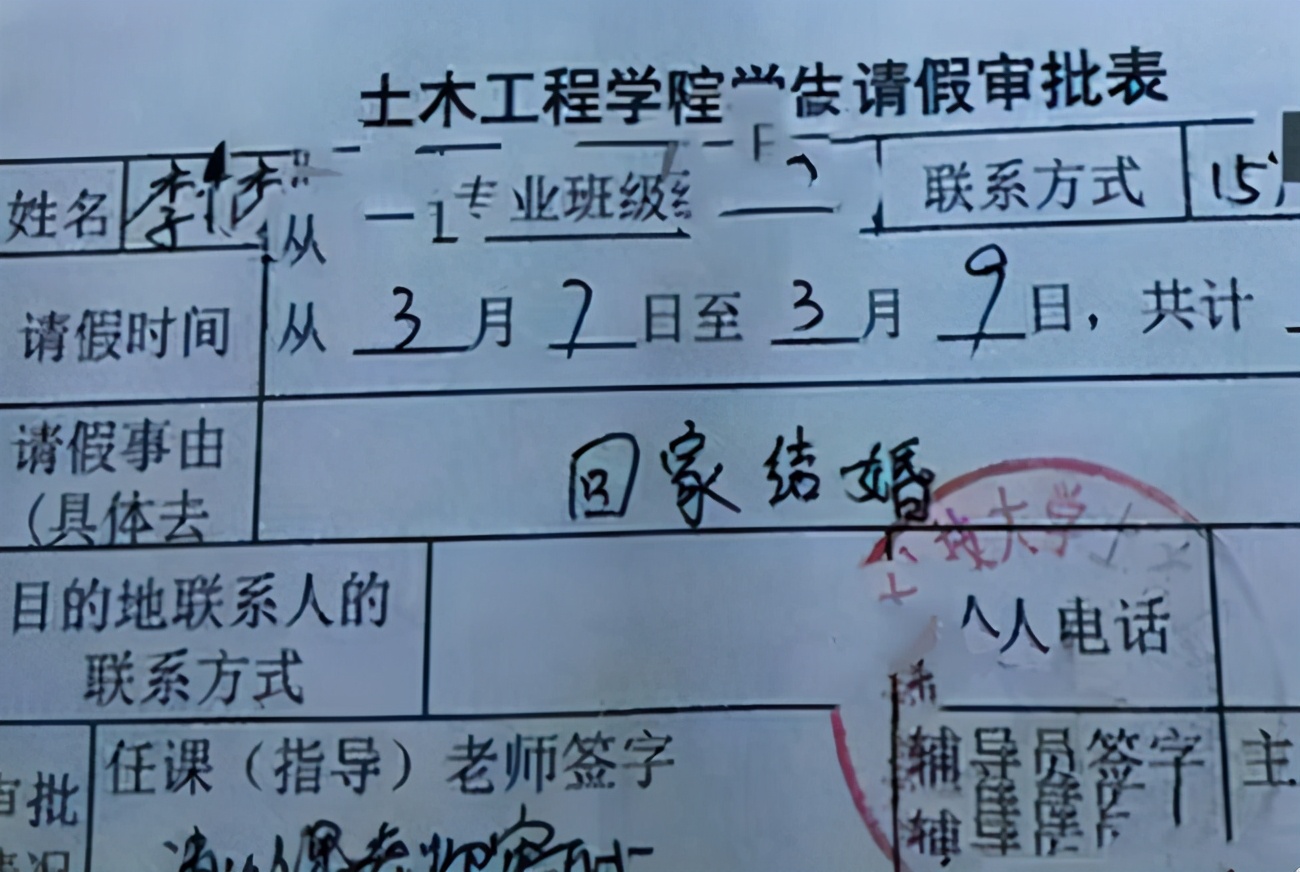 土木工程学院学生请假审批表
姓名 李 专业班级 联系方式 15
从
请假时间 从 3 月 7 日至 3 月 9 日，共计
请假事由 回家结婚
（具体去
大学
目的地联系人的 人电话
联系方式
任课（指导）老师签字 辅导员签字 主
批